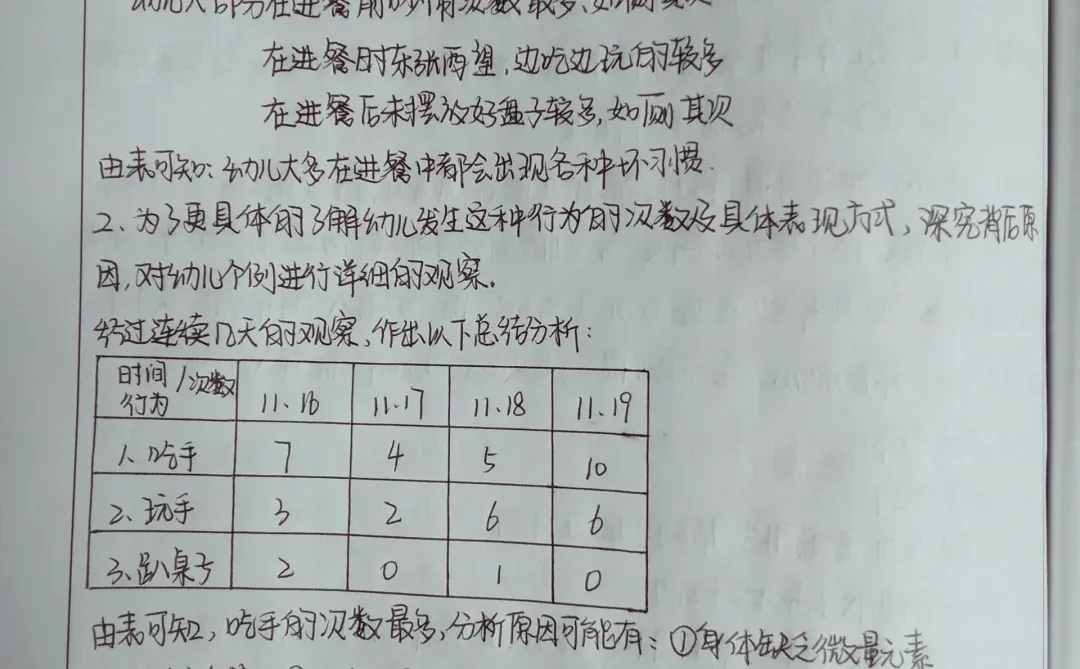 在进餐前的
次数最多,如厕其次
在进餐时东张西望,边吃边玩的较多
在进餐后未摆放好盘子较多,如厕其次
由表可知:幼儿大多在进餐中都会出现各种坏习惯.
2、为了更具体的了解幼儿发生这种行为的次数及具体表现方式,深究背后原
因,对幼儿个例进行详细的观察。
经过连续几天的观察,作出以下总结分析:
时间/次数 行为 11.16 11.17 11.18 11.19
1、吃手 7 4 5 10
2、玩手 3 2 6 6
3、趴桌子 2 0 1 0
由表可知,吃手的次数最多,分析原因可能有:①身体缺乏微量元素